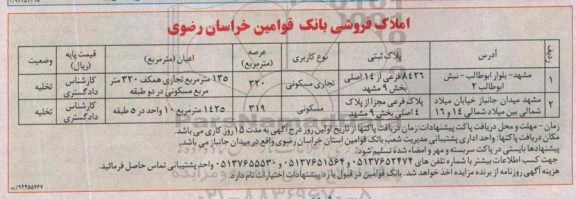 املاک فروشی بانک قوامین خراسان رضوی
ردیف آدرس پلاک ثبتی نوع کاربری عرصه (مترمربع) اعیان (مترمربع) قیمت پایه (ریال) وضعیت
۱ مشهد- بلوار ابوطالب - نبش ابوطالب ۲ ۸۴۲۶ فرعی از ۱۴ اصلی بخش ۹ مشهد تجاری مسکونی ۳۲۰ ۱۳۵ مترمربع تجاری همکف ۳۲۰ متر مربع مسکونی در دو طبقه کارشناس دادگستری تخلیه
۲ مشهد میدان جانباز خیابان میلاد شمالی بین میلاد شمالی ۱۴ و ۱۶ پلاک فرعی مجزا از پلاک ۴ اصلی بخش ۹ مشهد مسکونی ۳۱۹ ۱۴۲۵ مترمربع ۱۰ واحد در ۵ طبقه کارشناس دادگستری تخلیه
زمان - مهلت و محل دریافت پاکت پیشنهادات: زمان دریافت پاکتها از تاریخ اولین روز درج آگهی به مدت ۱۵ روز کاری می باشد.
مکان دریافت پاکتها: واحد اداری پشتیبانی مدیریت شعب بانک قوامین استان خراسان رضوی واقع در میدان جانباز می باشد.
پیشنهادها بایستی در پاکت سربسته و مهر و امضاء شده تسلیم شود.
جهت کسب اطلاعات بیشتر با شماره تلفن های ۰۵۱۳۷۶۵۲۴۷۴ و ۰۵۱۳۷۶۵۱۵۶۴ و ۰۵۱۳۷۶۵۵۵۳۰ واحد پشتیبانی تماس حاصل فرمائید.
هزینه آگهی روزنامه از برنده مزایده اخذ خواهد شد. بانک قوامین در قبول یا رد پیشنهادات اختیارات تام دارد.